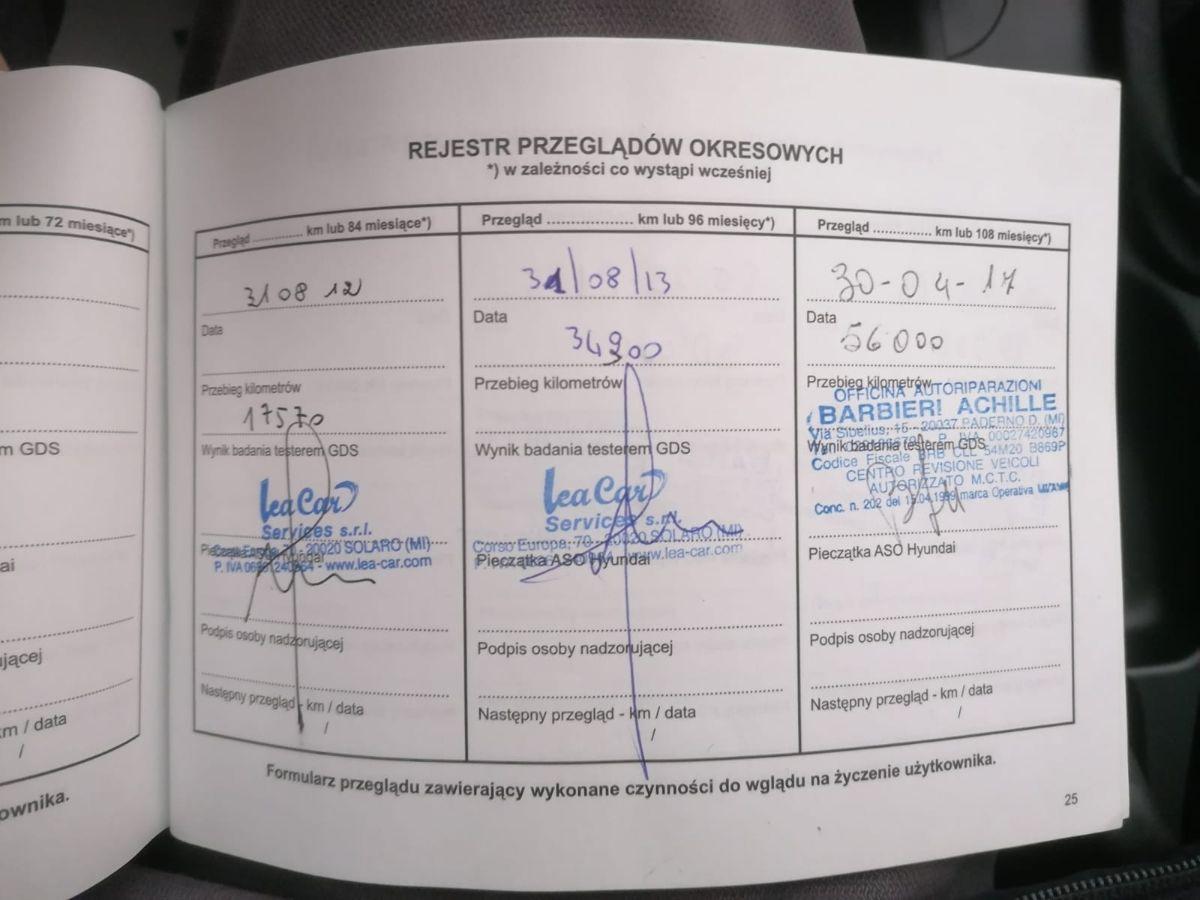 REJESTR PRZEGLĄDÓW OKRESOWYCH
*) w zależności co wystąpi wcześniej
m lub 72 miesiące*)
m GDS
ai
ującej
km / data
/
ownika.
Przegląd .............. km lub 84 miesiące*)
31 08 12
Data
Przebieg kilometrów
17570
Wynik badania testerem GDS
Lea Car
Services s.r.l.
20020 SOLARO (MI)
P. IVA - www.lea-car.com
Podpis osoby nadzorującej
Następny przegląd - km / data
/
Przegląd .................... km lub 96 miesięcy*)
31/08/13
Data
34900
Przebieg kilometrów
Wynik badania testerem GDS
Lea Car
Services s.r.l.
Corso Europa, 70 - 20020 SOLARO (MI)
www.lea-car.com
Pieczątka ASO Hyundai
Podpis osoby nadzorującej
Następny przegląd - km / data
/
Przegląd .............. km lub 108 miesięcy*)
30-04-17
Data
56000
Przebieg kilometrów
OFFICINA AUTORIPARAZIONI
BARBIERI ACHILLE
Via Sibelius, 15 - 20037 PADERNO D. (MI)
P. IVA 00027420967
Wynik badania testerem GDS
Codice Fiscale BRB CLL 54M20 B869P
CENTRO REVISIONE VEICOLI
AUTORIZZATO M.C.T.C.
Conc. n. 202 del 15.04.1999 marca Operativa
Pieczątka ASO Hyundai
Podpis osoby nadzorującej
Następny przegląd - km / data
/
Formularz przeglądu zawierający wykonane czynności do wglądu na życzenie użytkownika.
25